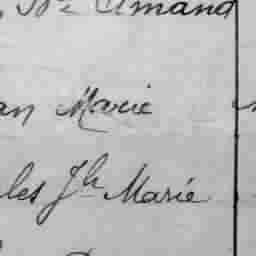 Amand
an Marie
les Jh Marie